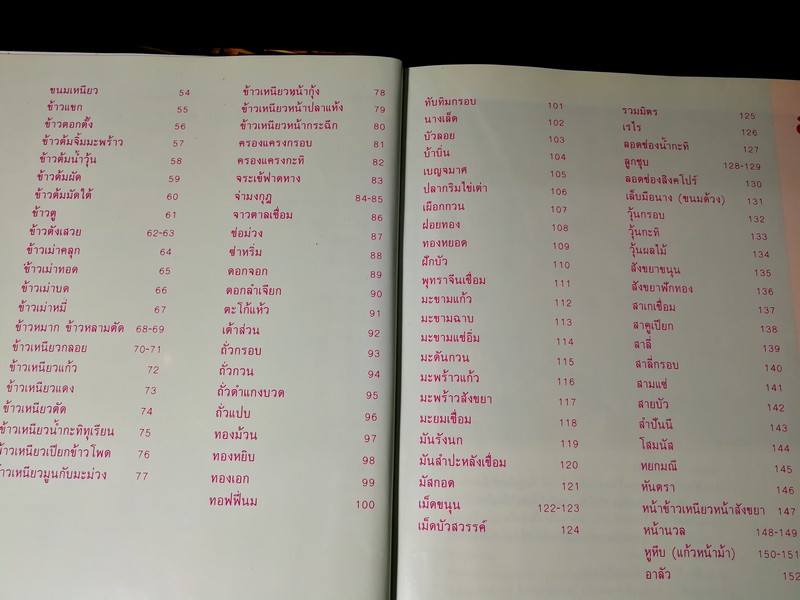 ขนมเหนียว 54
ข้าวแขก 55
ข้าวตอกตั้ง 56
ข้าวต้มจิ้มมะพร้าว 57
ข้าวต้มน้ำวุ้น 58
ข้าวต้มผัด 59
ข้าวต้มมัดใต้ 60
ข้าวตู 61
ข้าวตังเสวย 62-63
ข้าวเม่าคลุก 64
ข้าวเม่าทอด 65
ข้าวเม่าบด 66
ข้าวเม่าหมี่ 67
ข้าวหมาก ข้าวหลามตัด 68-69
ข้าวเหนียวกลอย 70-71
ข้าวเหนียวแก้ว 72
ข้าวเหนียวแดง 73
ข้าวเหนียวตัด 74
ข้าวเหนียวน้ำกะทิทุเรียน 75
ข้าวเหนียวเปียกข้าวโพด 76
ข้าวเหนียวมูนกับมะม่วง 77
ข้าวเหนียวหน้ากุ้ง 78
ข้าวเหนียวหน้าปลาแห้ง 79
ข้าวเหนียวหน้ากระฉีก 80
ครองแครงกรอบ 81
ครองแครงกะทิ 82
จระเข้ฟาดหาง 83
จ่ามงกุฎ 84-85
จาวตาลเชื่อม 86
ช่อม่วง 87
ซ่าหริ่ม 88
ดอกจอก 89
ดอกลำเจียก 90
ตะโก้แห้ว 91
เต้าส่วน 92
ถั่วกรอบ 93
ถั่วกวน 94
ถั่วดำแกงบวด 95
ถั่วแปบ 96
ทองม้วน 97
ทองหยิบ 98
ทองเอก 99
ทอฟฟี่นม 100
ทับทิมกรอบ 101
นางเล็ด 102
บัวลอย 103
บ้าบิ่น 104
เบญจมาศ 105
ปลากริมไข่เต่า 106
เผือกกวน 107
ฝอยทอง 108
ทองหยอด 109
ฝักบัว 110
พุทราจีนเชื่อม 111
มะขามแก้ว 112
มะขามฉาบ 113
มะขามแช่อิ่ม 114
มะดันกวน 115
มะพร้าวแก้ว 116
มะพร้าวสังขยา 117
มะยมเชื่อม 118
มันรังนก 119
มันสำปะหลังเชื่อม 120
มัสกอด 121
เม็ดขนุน 122-123
เม็ดบัวสวรรค์ 124
รวมมิตร 125
เรไร 126
ลอดช่องน้ำกะทิ 127
ลูกชุบ 128-129
ลอดช่องสิงคโปร์ 130
เล็บมือนาง (ขนมด้วง) 131
วุ้นกรอบ 132
วุ้นกะทิ 133
วุ้นผลไม้ 134
สังขยาขนุน 135
สังขยาฟักทอง 136
สาเกเชื่อม 137
สาคูเปียก 138
สาลี่ 139
สาลี่กรอบ 140
สามแซ่ 141
สายบัว 142
ลำปันนี 143
โสมนัส 144
หยกมณี 145
หันตรา 146
หน้าข้าวเหนียวหน้าสังขยา 147
หน้านวล 148-149
หูหีบ (แก้วหน้าม้า) 150-151
อาลัว 152